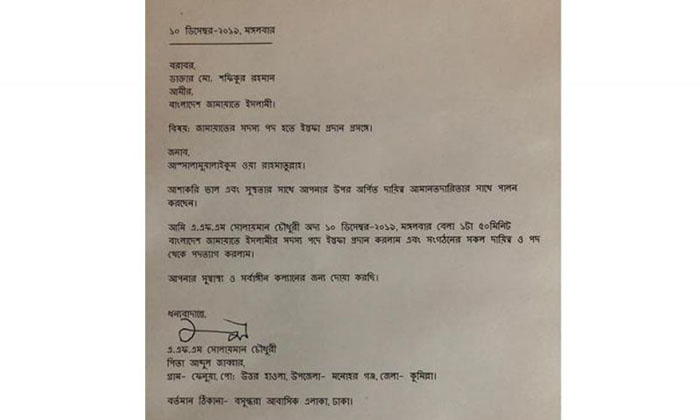 ১০ ডিসেম্বর-২০১৯, মঙ্গলবার
বরাবর,
ডাক্তার মো. শফিকুর রহমান
আমীর,
বাংলাদেশ জামায়াতে ইসলামী।
বিষয়: জামায়াতের সদস্য পদ হতে ইস্তফা প্রদান প্রসঙ্গে।
জনাব,
আস্সালামুয়ালাইকুম ওয়া রাহমাতুল্লাহ।
আশাকরি ভাল এবং সুস্থতার সাথে আপনার উপর অর্পিত দায়িত্ব আমানতদারিতার সাথে পালন
করছেন।
আমি এ.এফ.এম সোলায়মান চৌধুরী অদ্য ১০ ডিসেম্বর-২০১৯, মঙ্গলবার বেলা ১টা ৫০মিনিট
বাংলাদেশ জামায়াতে ইসলামীর সদস্য পদে ইস্তফা প্রদান করলাম এবং সংগঠনের সকল দায়িত্ব ও পদ
থেকে পদত্যাগ করলাম।
আপনার সুস্বাস্থ্য ও সর্বাঙ্গীন কল্যানের জন্য দোয়া করছি।
ধন্যবাদান্তে,
এ.এফ.এম সোলায়মান চৌধুরী
পিতা আব্দুল জাব্বার,
গ্রাম- ফেনুয়া, পো: উত্তর হাওলা, উপজেলা- মনোহর গঞ্জ, জেলা- কুমিল্লা।
বর্তমান ঠিকানা- বসুন্ধরা আবাসিক এলাকা, ঢাকা।